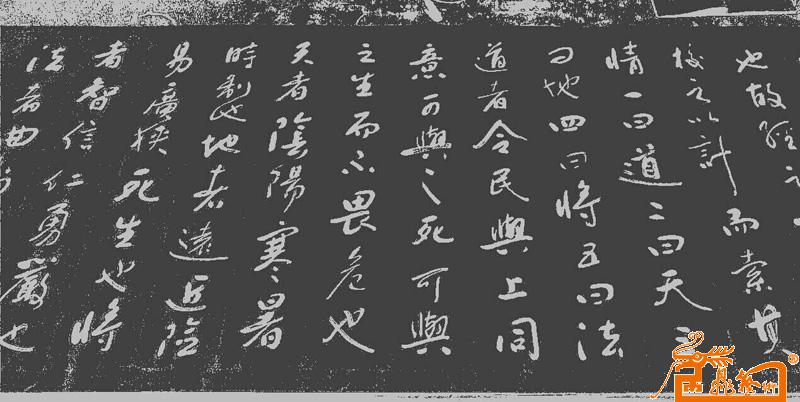 也故經之
校之以計而索其
情一曰道二曰天三
曰地四曰將五曰法
道者令民與上同
意可與之死可與
之生而不畏危也
天者陰陽寒暑
時制也地者遠近險
易廣狹死生也將
者智信仁勇嚴也
法者曲